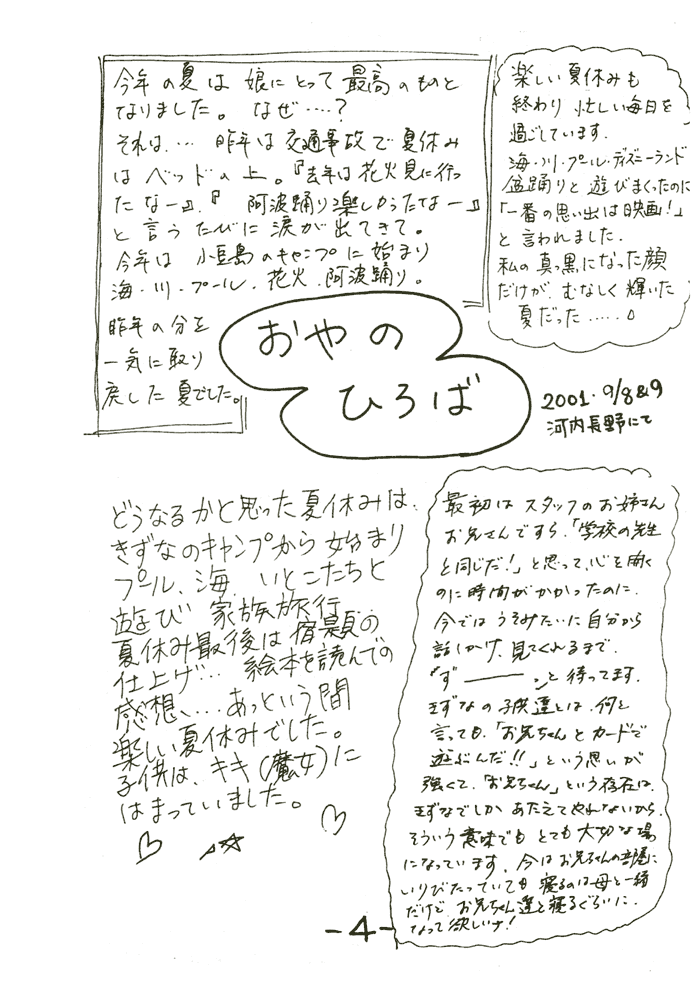 今年の夏は娘にとって最高のものと
なりました。なぜ‥‥?
それは‥‥昨年は交通事故で夏休み
はベッドの上。『去年は花火見に行っ
たなー』、『阿波踊り楽しかったなー』
と言うたびに涙が出てきて。
今年は小豆島のキャンプに始まり
海・川・プール、花火、阿波踊り。
昨年の分を
一気に取り
戻した夏でした。
楽しい夏休みも
終わり忙しい毎日を
過ごしています。
海・川・プール・ディズニーランド
盆踊りと遊びまくったのに
「一番の思い出は映画!」
と言われました。
私の真っ黒になった顔
だけが、むなしく輝いた
夏だった‥‥‥。
おやの
ひろば
2001.9/8&9
河内長野にて
どうなるかと思った夏休みは、
きずなのキャンプから始まり
プール、海、いとこたちと
遊び 家族旅行
夏休み最後は宿題の
仕上げ‥‥ 絵本を読んでの
感想、‥‥あっという間
楽しい夏休みでした。
子供は、キキ(魔女)に
はまっていました。
最初はスタッフのお姉さん
お兄さんですら、「学校の先生
と同じだ!」と思って、心を開く
のに時間がかかったのに、
今ではうそみたいに自分から
話しかけ、見てくれるまで、
"ず―――っと待ってます。
きずなの子供達とは、何と
言っても、「お兄ちゃんとカードで
遊ぶんだ!!」という思いが
強くて、「お兄ちゃん」という存在は、
きずなでしかあたえてやれないから、
そういう意味でもとても大切な場
になっています。今はお兄ちゃんの部屋に
いりびたっていても寝るのは母と一緒
だけど、お兄ちゃん達と寝るぐらいに、
なって欲しいナ!
-4-